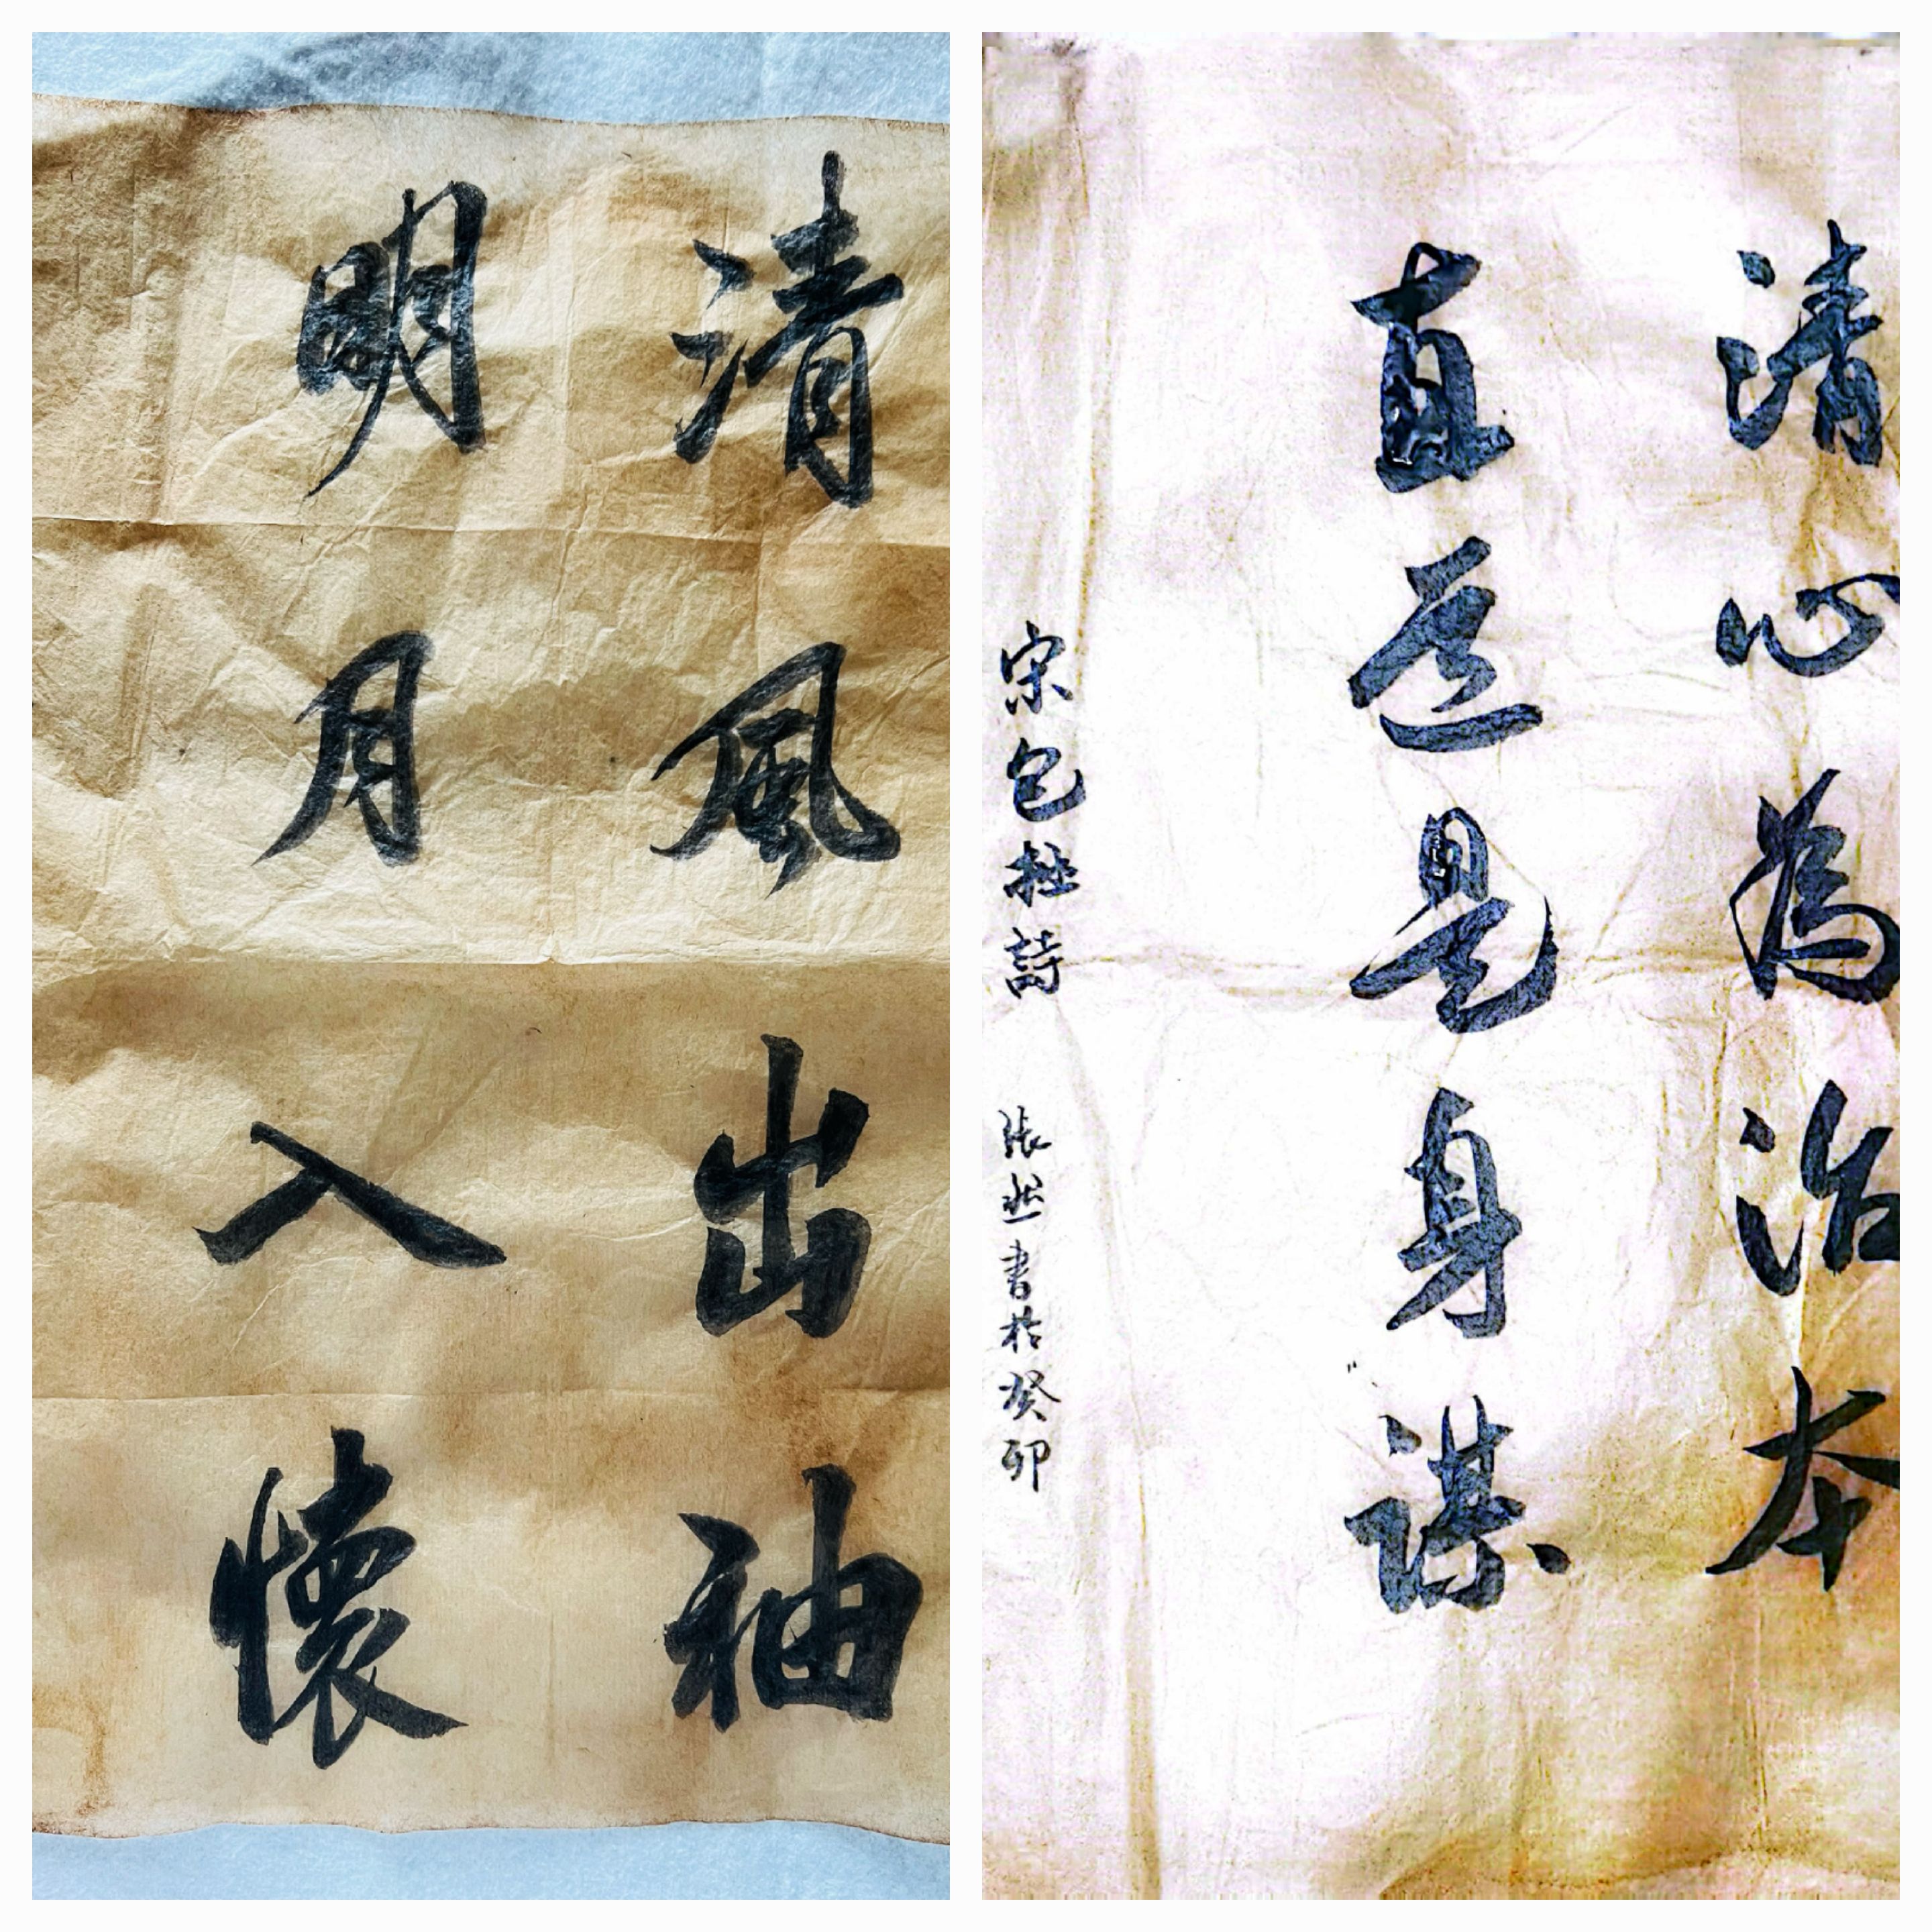 清風出袖
明月入懷
清心為治本
直道是身謀
宋包拯詩
張然書於癸卯